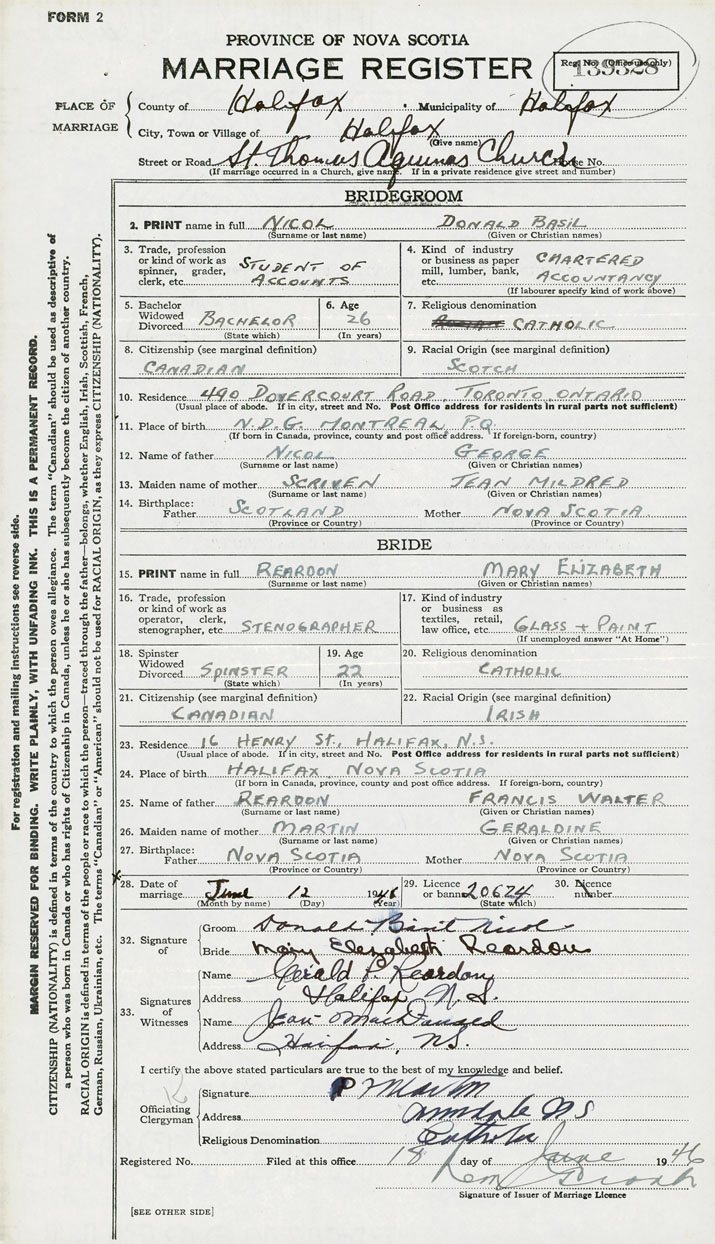 FORM 2
PROVINCE OF NOVA SCOTIA
MARRIAGE REGISTER
Reg. No. (Office use only)
PLACE OF MARRIAGE
County of Halifax Municipality of Halifax
City, Town or Village of Halifax
(Give name)
Street or Road St. Thomas Aquinas Church House No.
(If marriage occurred in a Church, give name. If in a private residence give street and number)
BRIDEGROOM
2. PRINT name in full NICOL DONALD BASIL
(Surname or last name) (Given or Christian names)
3. Trade, profession or kind of work as spinner, grader, clerk, etc. STUDENT OF ACCOUNTS
4. Kind of industry or business as paper mill, lumber, bank, etc. CHARTERED ACCOUNTANCY
(If labourer specify kind of work above)
5. Bachelor Widowed Divorced BACHELOR
(State which)
6. Age 26
(In years)
7. Religious denomination CATHOLIC
8. Citizenship (see marginal definition)
CANADIAN
9. Racial Origin (see marginal definition)
SCOTCH
10. Residence 490 DOVERCOURT ROAD, TORONTO, ONTARIO
(Usual place of abode. If in city, street and No. Post Office address for residents in rural parts not sufficient)
11. Place of birth N.D.G. MONTREAL, P.Q.
(If born in Canada, province, county and post office address. If foreign-born, country)
12. Name of father NICOL GEORGE
(Surname or last name) (Given or Christian names)
13. Maiden name of mother SCRIVEN JEAN MILDRED
(Surname or last name) (Given or Christian names)
14. Birthplace: Father SCOTLAND Mother NOVA SCOTIA
(Province or Country) (Province or Country)
BRIDE
15. PRINT name in full REARDON MARY ELIZABETH
(Surname or last name) (Given or Christian names)
16. Trade, profession or kind of work as operator, clerk, stenographer, etc. STENOGRAPHER
17. Kind of industry or business as textiles, retail, law office, etc. GLASS + PAINT
(If unemployed answer "At Home")
18. Spinster Widowed Divorced SPINSTER
(State which)
19. Age 22
(In years)
20. Religious denomination
CATHOLIC
21. Citizenship (see marginal definition)
CANADIAN
22. Racial Origin (see marginal definition)
IRISH
23. Residence 16 HENRY ST., HALIFAX, N.S.
(Usual place of abode. If in city, street and No. Post Office address for residents in rural parts not sufficient)
24. Place of birth HALIFAX, NOVA SCOTIA
(If born in Canada, province, county and post office address. If foreign-born, country)
25. Name of father REARDON FRANCIS WALTER
(Surname or last name) (Given or Christian names)
26. Maiden name of mother MARTIN GERALDINE
(Surname or last name) (Given or Christian names)
27. Birthplace: Father NOVA SCOTIA Mother NOVA SCOTIA
(Province or Country) (Province or Country)
28. Date of marriage June 12 1946
(Month by name) (Day) (Year)
29. Licence or banns 20674
(State which)
30. Licence number
32. Signature of
Groom Donald Basil Nicol
Bride Mary Elizabeth Reardon
33. Signatures of Witnesses
Name Gerald F. Reardon
Address Halifax N.S.
Name Jean
Address Halifax, N.S.
I certify the above stated particulars are true to the best of my knowledge and belief.
Officiating Clergyman
Signature Martin
Address Armdale N S
Religious Denomination Catholic
Registered No. Filed at this office 18 day of June 1946
Signature of Issuer of Marriage Licence
[SEE OTHER SIDE]
For registration and mailing instructions see reverse side.
MARGIN RESERVED FOR BINDING. WRITE PLAINLY, WITH UNFADING INK. THIS IS A PERMANENT RECORD.
CITIZENSHIP (NATIONALITY) is defined in terms of the country to which the person owes allegiance. The term "Canadian" should be used as descriptive of
a person who was born in Canada or who has rights of Citizenship in Canada, unless he or she has subsequently become the citizen of another country.
RACIAL ORIGIN is defined in terms of the people or race to which the person—traced through the father—belongs, whether English, Irish, Scottish, French,
German, Russian, Ukrainian, etc. The terms "Canadian" or "American" should not be used for RACIAL ORIGIN, as they express CITIZENSHIP (NATIONALITY).